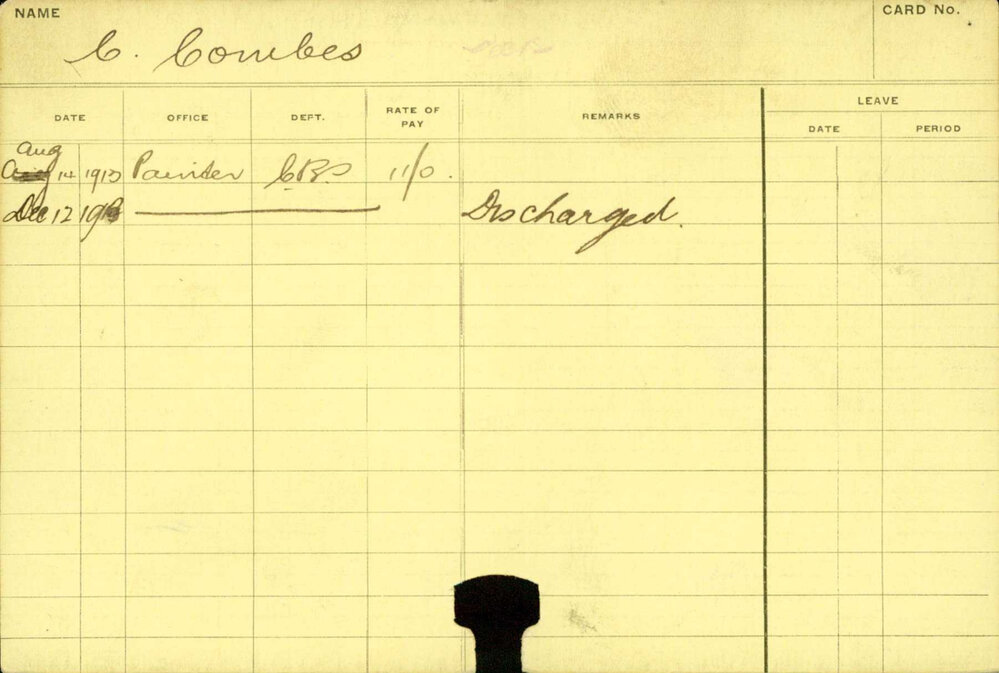 NAME
CARD No.
C. Combes
DATE OFFICE DEPT. RATE OF PAY REMARKS LEAVE
DATE PERIOD
Aug
14 1913 Painter 11/0.
Dec 12 Discharged.